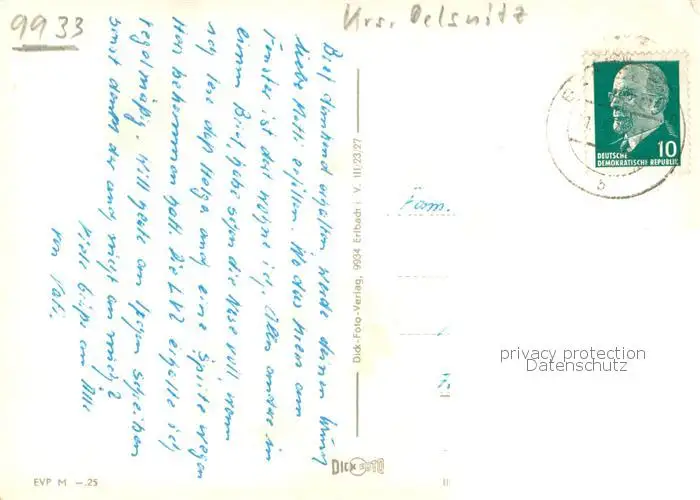 9933
Krs. Oelsnitz
Brief dankend erhalten, werde deinen Wunsch
liebe Mutti erfüllen. Wo das Kreuz am
Fenster ist da wohne ich. Allen antworte in
einem Brief, habe schon die Nase voll, wenn
ich lese daß Helga auch eine Spritze wegen
bekommen hat. Die LVZ erhalte ich
regelmäßig, will heute an schreiben
sonst denkt die auch nicht an mich?
Viele Grüße an Alle
von Vati.
Dick-Foto-Verlag, 9934 Erlbach i. V. III/23/27
DICK FOTO
EVP M -.25
Fam.
10
DEUTSCHE
DEMOKRATISCHE REPUBLIK
b
privacy protection
Datenschutz